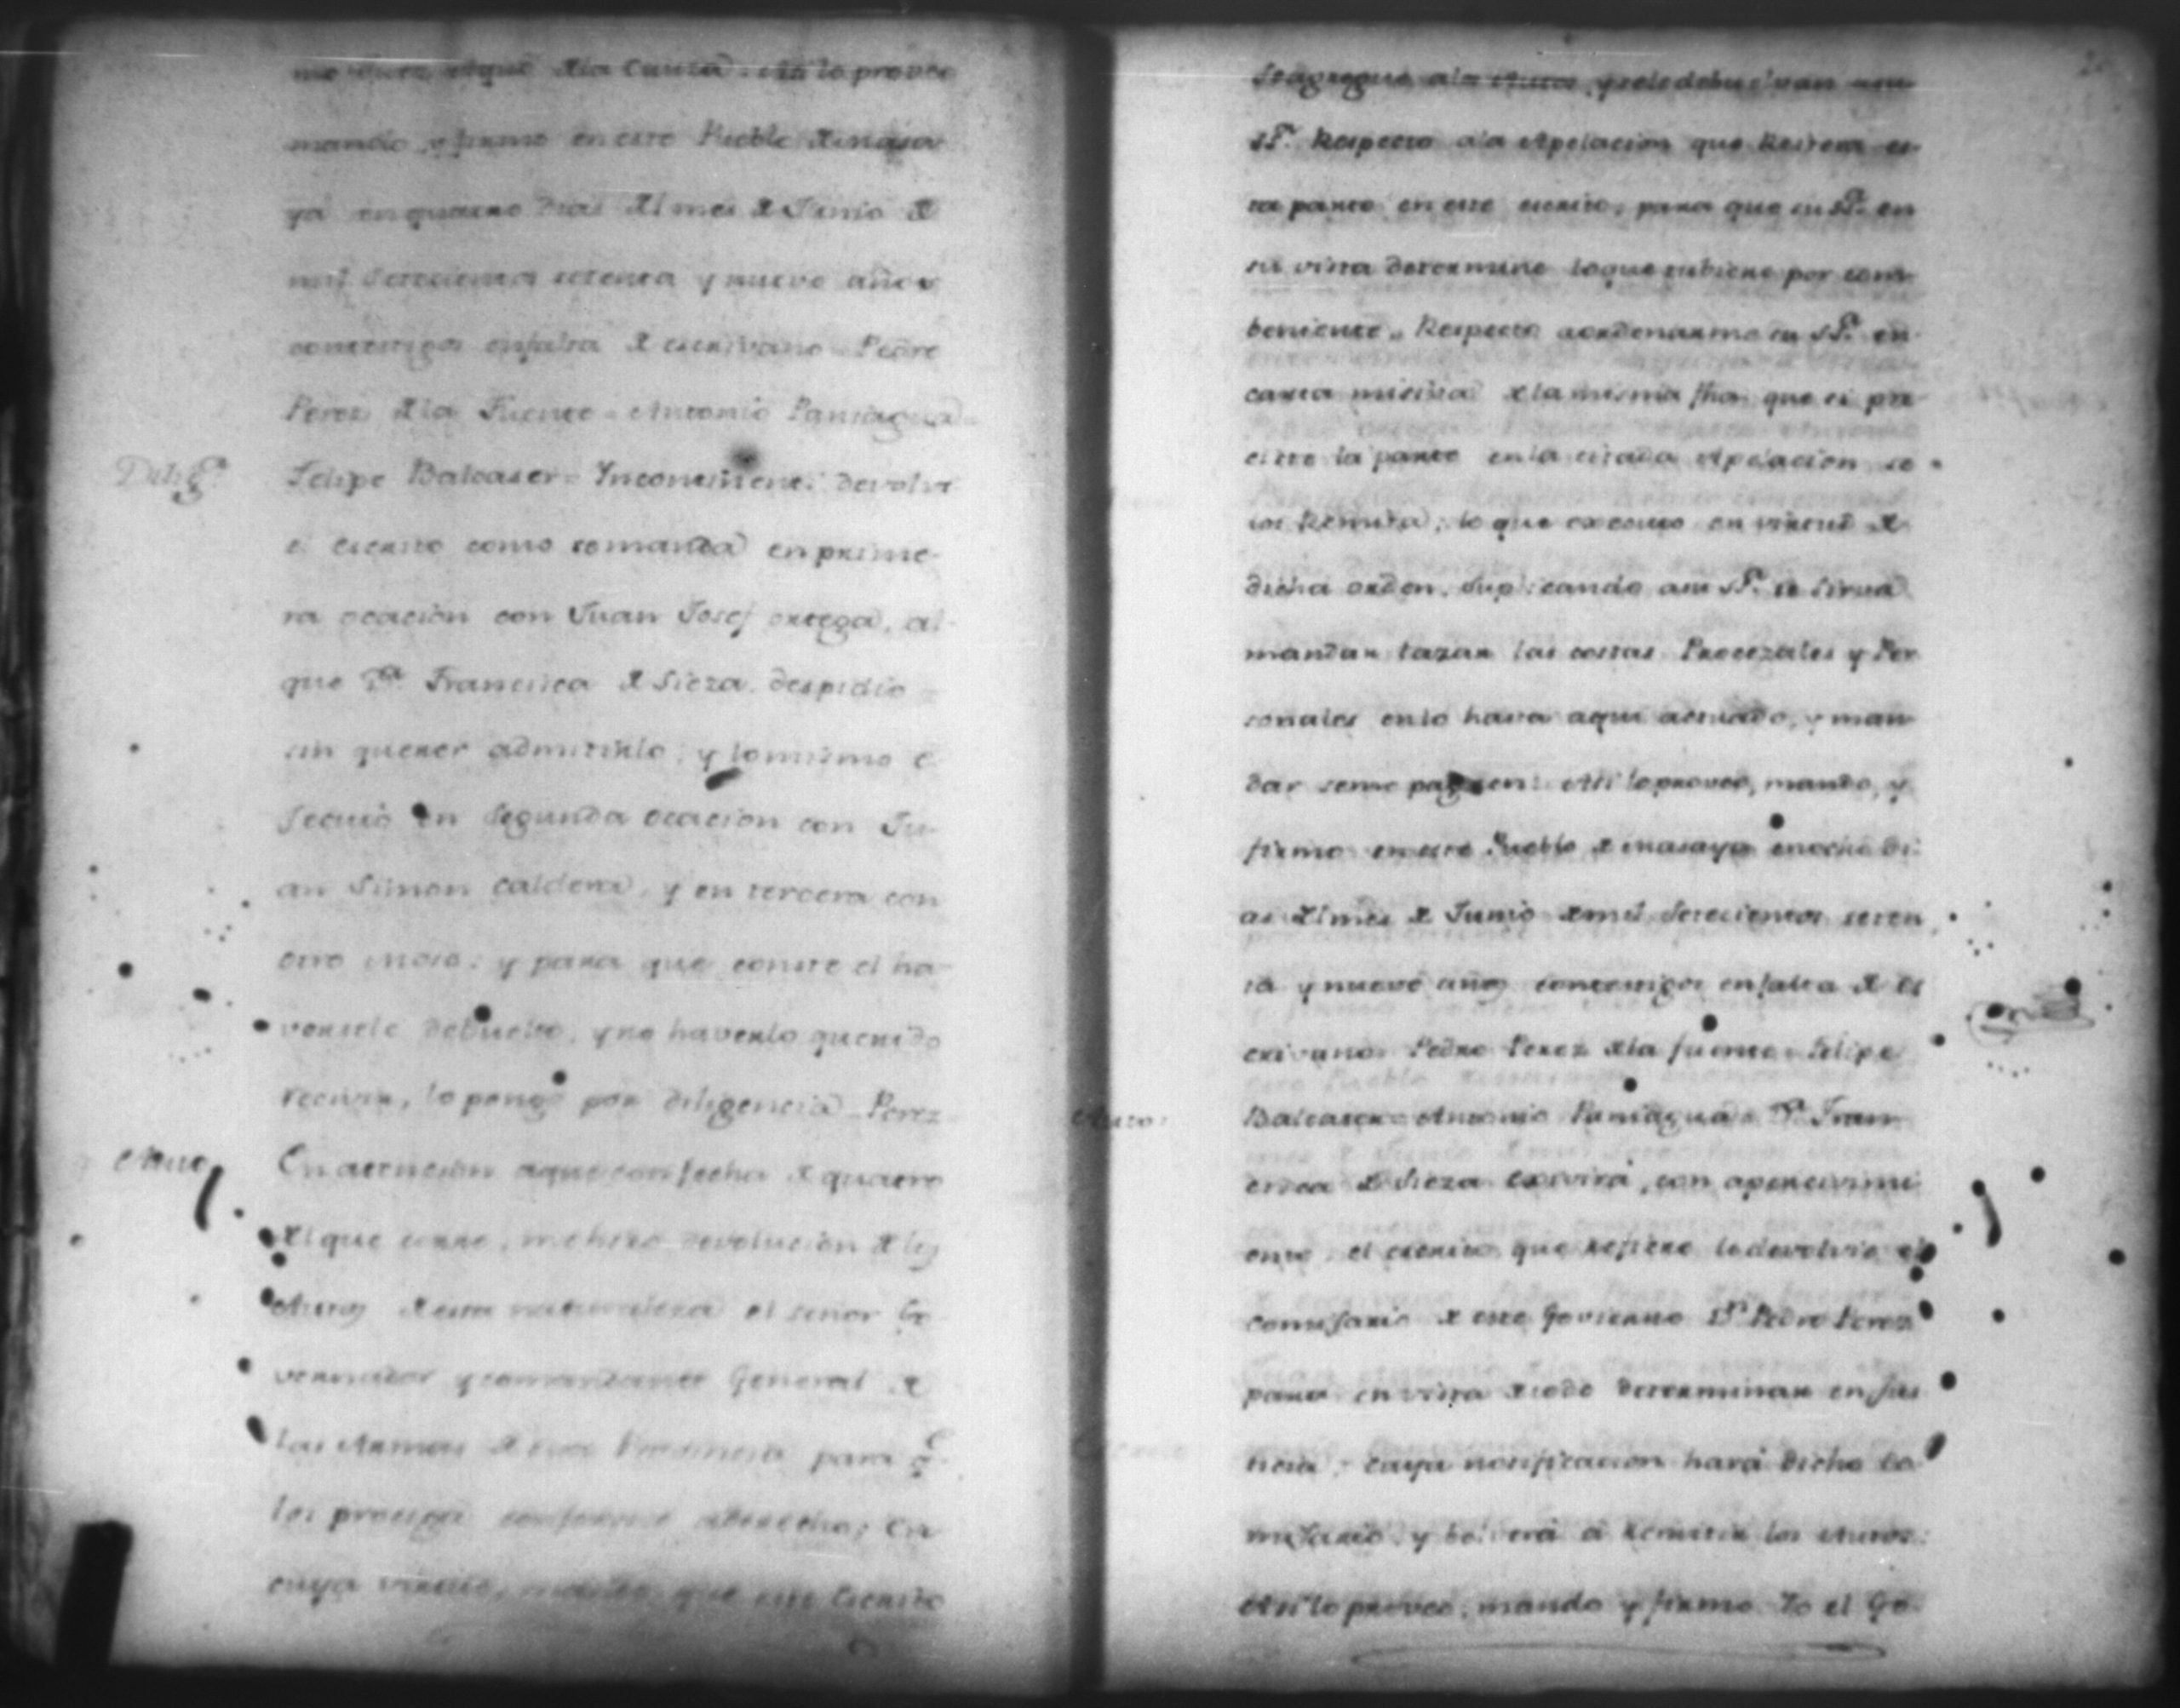 dela Causa. Asi lo proveo
mando, y firmo en este Pueblo demasa
ya en quatro dias del mes de Junio de
mil setecientos setenta y nueve años
contestigos enfalta de escrivano = Pedro
Perez dela Fuente = Antonio Paniagua =
Dilig.a
Felipe Balcaser = Yncontinenti devolvi
el escrito como semanda en prime-
ra ocacion con Juan Josef ortega, al
que D.a Francisca de Sieza despidio
sin querer admitirlo; y lomismo e
Jecutó en segunda ocacion con Ju-
an Simon Caldera, y en tercera con
otro moso: y para que conste el ha-
versele debuelto, y no haverlo querido
recivir, lo pongo por diligencia = Perez
Auto
En atencion aque con fecha de quatro
del que corre, mehizo devolucion de los
Autos de esta naturaleza el señor Go
vernador y comandante General de
las Armas de esta Provincia para q.e
los prosiga conforme aderecho; En
cuya virtud, mando que este Escrito
Seagregue ala Autos, y sele debuelvan a su
S.ria Respecto ala Apelacion que Refiere es-
ta parte en este escrito, para que su S.ria en
su vista determine loque tubiere por com-
beniente. Respecto aordenarme su S.ria en
carta misiva de la misma fha que si pre
esta la parte en la citada Apelacion se
los Remita; lo que executo en virtud de
dicha orden, suplicando asu S.ria se sirva
mandar tazar las costas Procezales y Per
sonales enlo hasta aqui actuado, y man
dar seme paguen: Asi lo proveo, mando, y
firmo en este Pueblo de masaya enocho di-
as del mes de Junio demil setecientos seten
ta y nueve años contestigos enfalta de es
crivano = Pedro Perez dela fuente = Felipe
Balcaser = Antonio Paniagua =
Auto:
D.a Fran
cisca de Sieza exivirá, con apercivimi
ento, el escrito que refiere le devolvio el
Comisario de este Govierno D.n Pedro Perez
para en vista de todo determinar en Jus
ticia; cuya notificacion hará dicho Co
misario, y bolverá á Remitir los Autos:
Asi lo proveo, mando y firmo Yo el Go